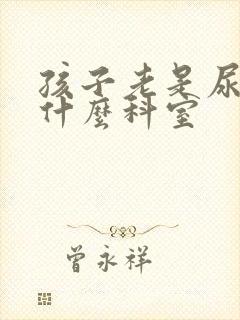 孩子老是尿
什麼科室
曾永祥